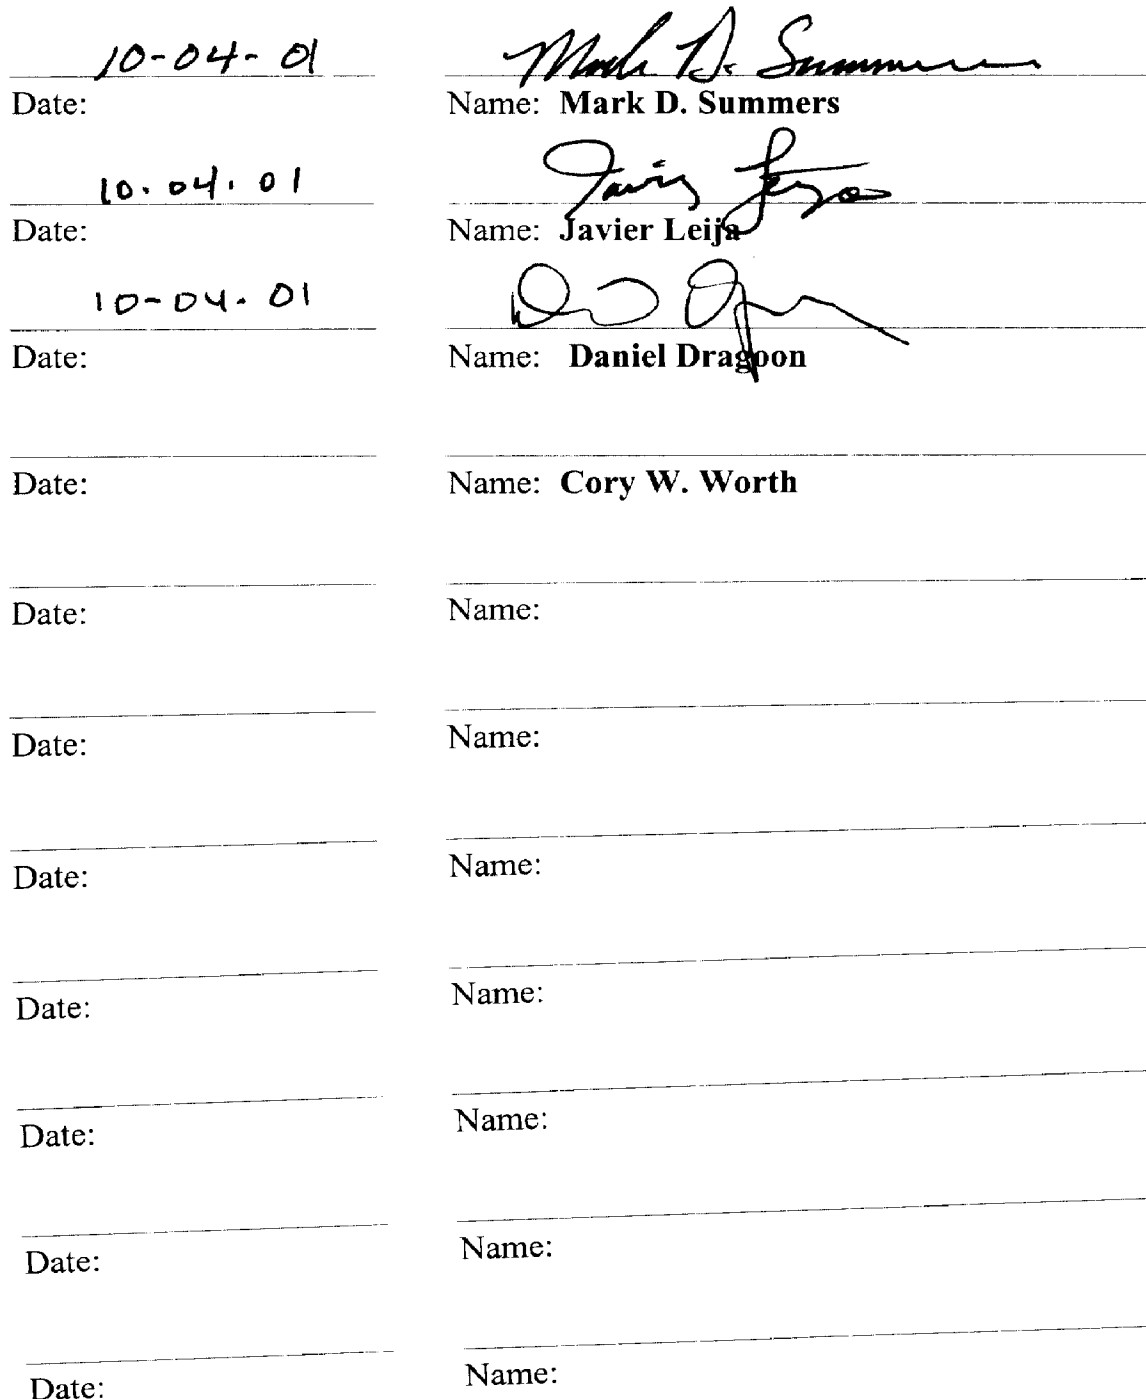 10-04-01 Mark D. Summers
Date: Name: Mark D. Summers
10.04.01 Javier Leija
Date: Name: Javier Leija
10-04.01
Date: Name: Daniel Dragoon
Date: Name: Cory W. Worth
Date: Name:
Date: Name:
Date: Name:
Date: Name:
Date: Name:
Date: Name:
Date: Name: